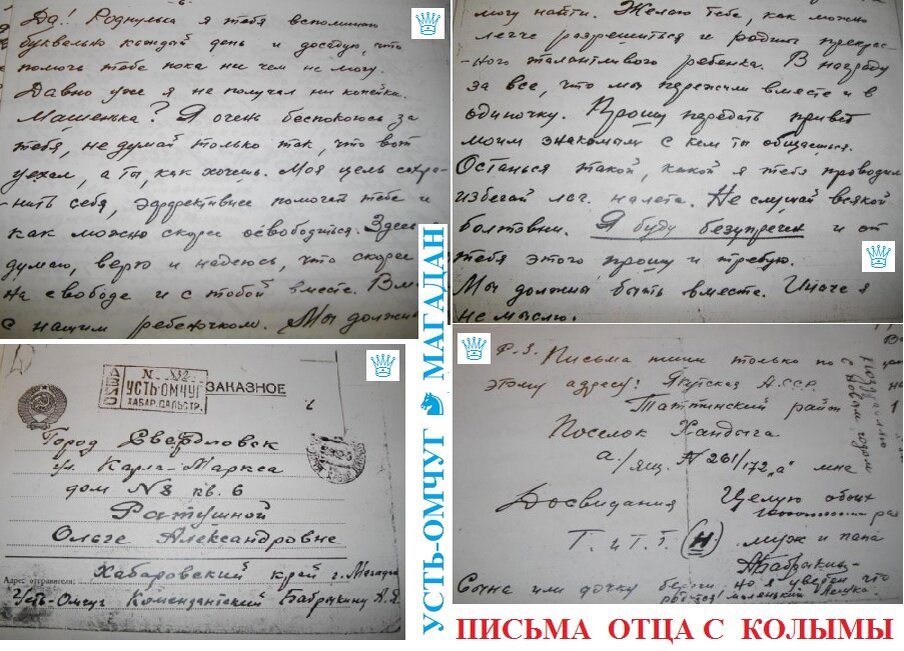 Да! Роднулька я тебя вспоминаю
буквально каждый день и досадую, что
помочь тебе пока ни чем не могу.
Давно уже я не получал ни копейки.
Машенька? Я очень беспокоюсь за
тебя, не думай только так, что вот
уехал, а ты, как хочешь. Моя цель сохра-
-нить себя, эффективнее помогать тебе и
как можно скорее освободиться. Здесь
думаю, верю и надеюсь, что скорее
на свободе и с тобой вместе. Вм
с нашим ребеночком. Мы должны
могу найти. Желаю тебе, как можно
легче разрешиться и родить прекрас-
ного талантливого ребенка. В награду
за все, что мы пережили вместе и в
одиночку. Прошу передать привет
моим знакомым с кем ты общаешься.
Останься такой, какой я тебя проводил
избегай лаг. налета. Не слушай всякой
болтовни. Я буду безупречен и от
тебя этого прошу и требую.
Мы должны быть вместе. Иначе я
не мыслю.
АВИО
N 832
УСТЬ-ОМЧУГ
ХАБАР. ДАЛЬСТР.
ЗАКАЗНОЕ
Город Свердловск
ул. Карла-Маркса
дом N8 кв. 6
Ратушной
Ольге Александровне
Хабаровский край г. Магадан
Адрес отправителя:
Усть-Омчуг Комендантский Бабрыкину А.Я.
УСТЬ-ОМЧУГ МАГАДАН
Р.S. Письма пиши только по
этому адресу: Якутская АССР
Таттинский район
Поселок Хандыга
а/ящ. N 261/172 „а" мне
Поздравляю
с новым годом
Досвидания Целую обоих
Т. и Т. Т. Н. муж и папа
Бабрыкин
Сына или дочку береги. но я уверен что
маленький
ПИСЬМА ОТЦА С КОЛЫМЫ